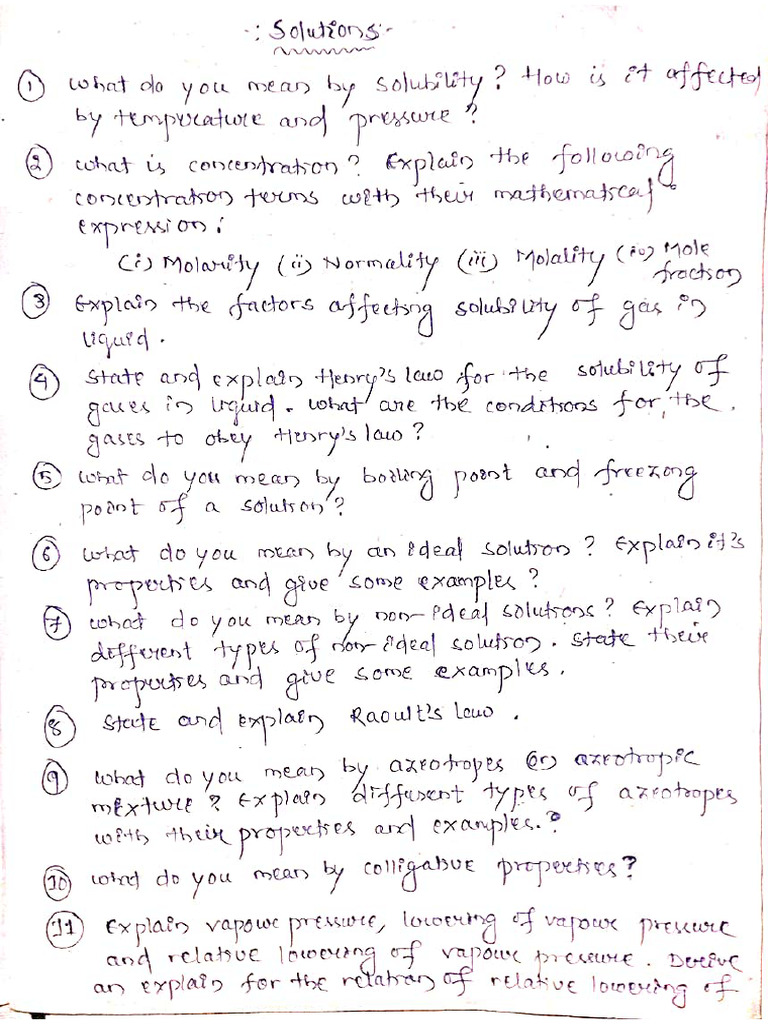 -: Solutions -
① What do you mean by solubility? How is it affected
by temperature and pressure?
② What is concentration? Explain the following
concentration terms with their mathematical
expression:
(i) Molarity (ii) Normality (iii) Molality (iv) Mole
fraction
③ Explain the factors affecting solubility of gas in
liquid.
④ State and explain Henry's law for the solubility of
gases in liquid. What are the conditions for the
gases to obey Henry's law?
⑤ What do you mean by boiling point and freezong
point of a solution?
⑥ What do you mean by an ideal solution? Explain it's
properties and give some examples?
⑦ What do you mean by non-ideal solutions? Explain
different types of non-ideal solution. State their
properties and give some examples.
⑧ State and explain Raoult's law.
⑨ What do you mean by azeotropes or azeotropic
mixture? Explain different types of azeotropes
with their properties and examples.?
⑩ What do you mean by colligative properties?
⑪ Explain vapour pressure, lowering of vapour pressure
and relative lowering of vapour pressure. Derive
an explain for the relation of relative lowering of